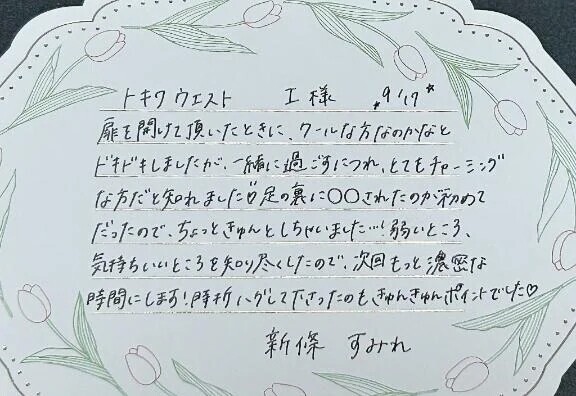 トキワウエスト 工様 *9/17*
扉を開けて頂いたときに、クールな方なのかなと
ドキドキしましたが、一緒に過ごすにつれ、とてもチャーミング
な方だと知れました♡足の裏に○○されたのが初めて
だったので、ちょっときゅんとしちゃいました…!弱いところ、
気持ちいいところを知り尽くしたので、次回もっと濃密な
時間にします!時折ハグして下さったのもきゅんきゅんポイントでした♡
新條 すみれ